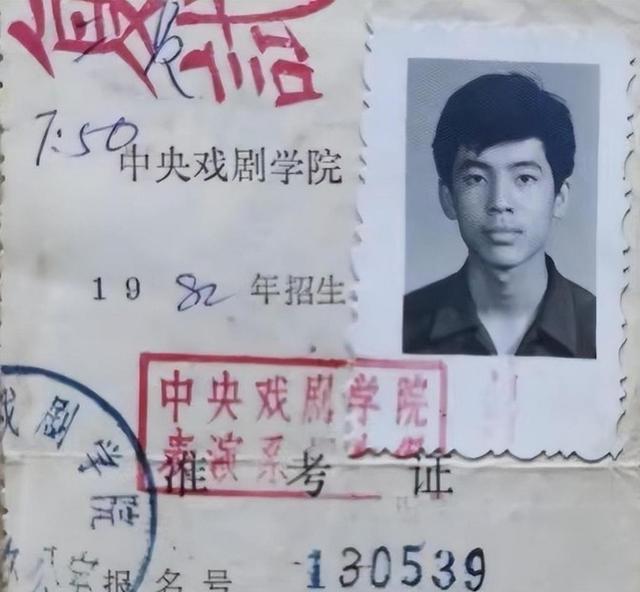 7:50
中央戏剧学院
1982年招生
中央戏剧学院
表演系
准考证
学院
报名号 130539